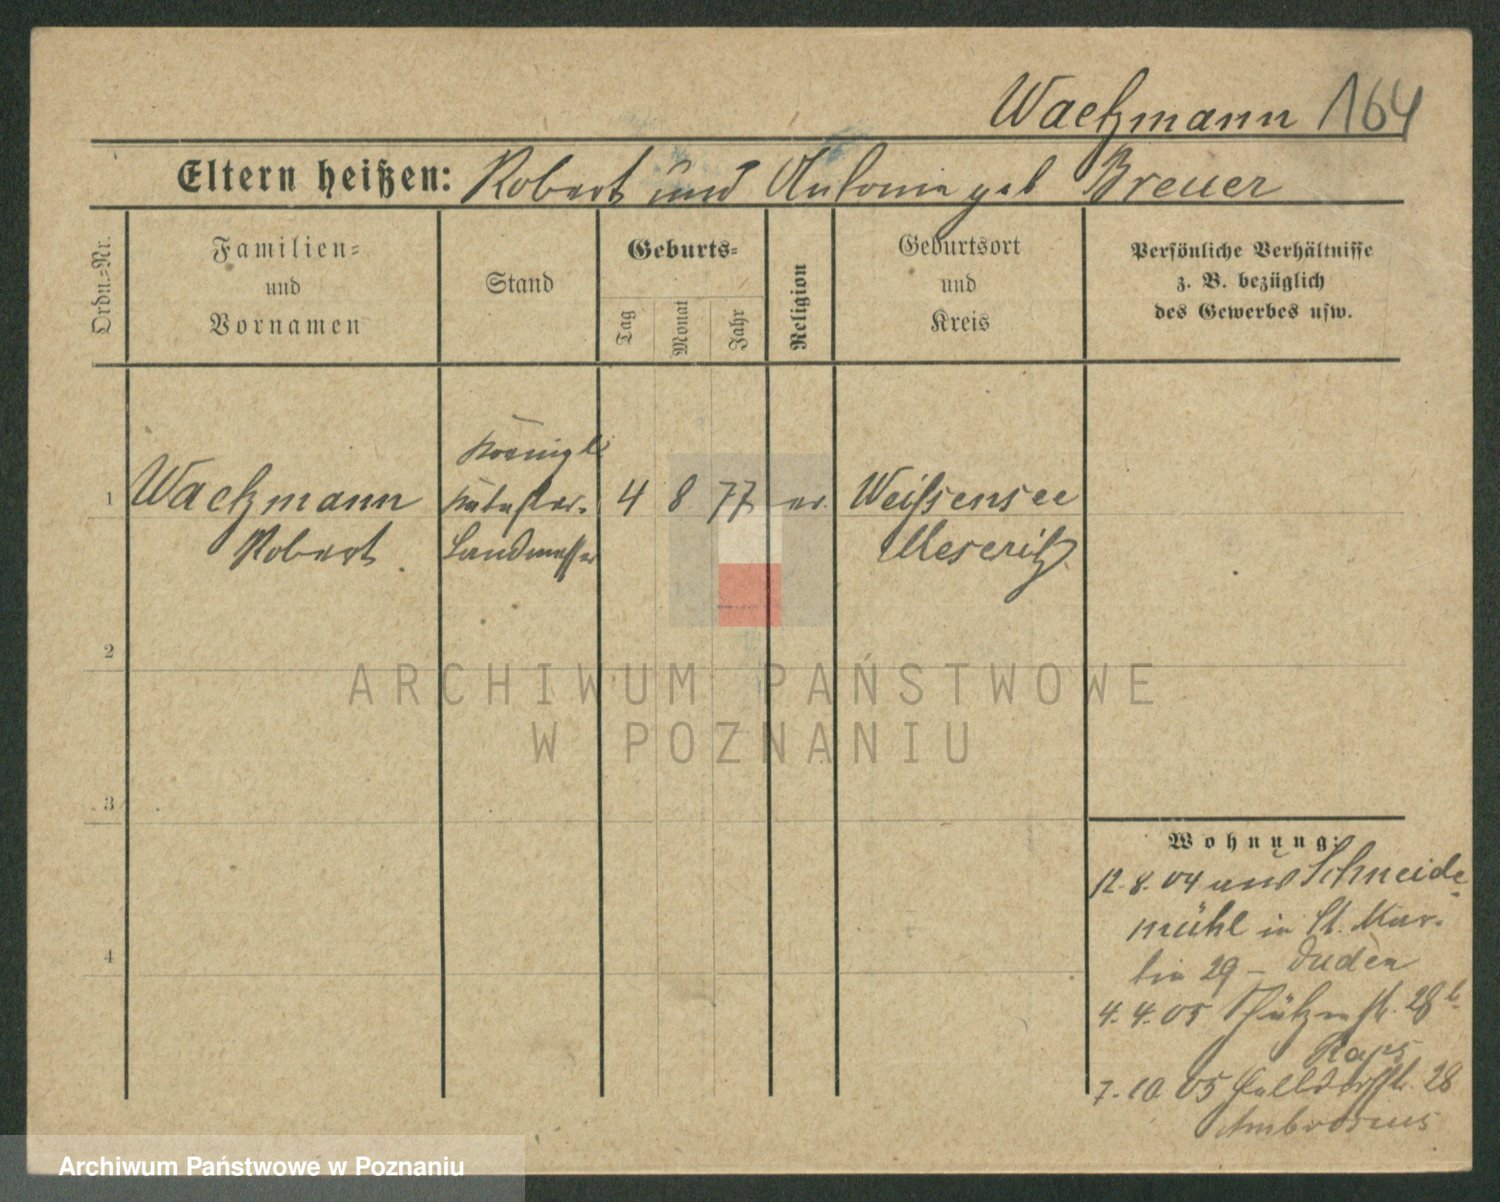 Waetzmann 164
Eltern heißen: Robert und Antonie geb Breuer
Ordn.-Nr.
Familien-
und
Vornamen
Stand
Geburts-
Tag
Monat
Jahr
Religion
Geburtsort
und
Kreis
Persönliche Verhältnisse
z. B. bezüglich
des Gewerbes usw.
Königl.
1 Waetzmann Kataster- 4 8 77 ev. Weißensee
Robert. Landmesser Meseritz
2
ARCHIWUM PAŃSTWOWE
W POZNANIU
3
Wohnung:
12.8.04 aus Schneide-
mühl in St. Mar-
4
tin 29 - Duden
4.4.05 Schützenstr. 28b.
Raps
7.10 05 28
Ambrosius
Archiwum Państwowe w Poznaniu